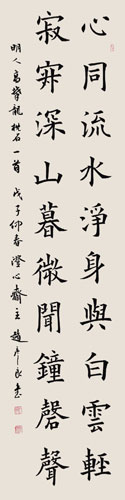 心同流水淨身與白雲輕
寂寂深山暮微聞鐘磬聲
明人高攀龍枕石一首 戊子仲春 澄心齋主 趙